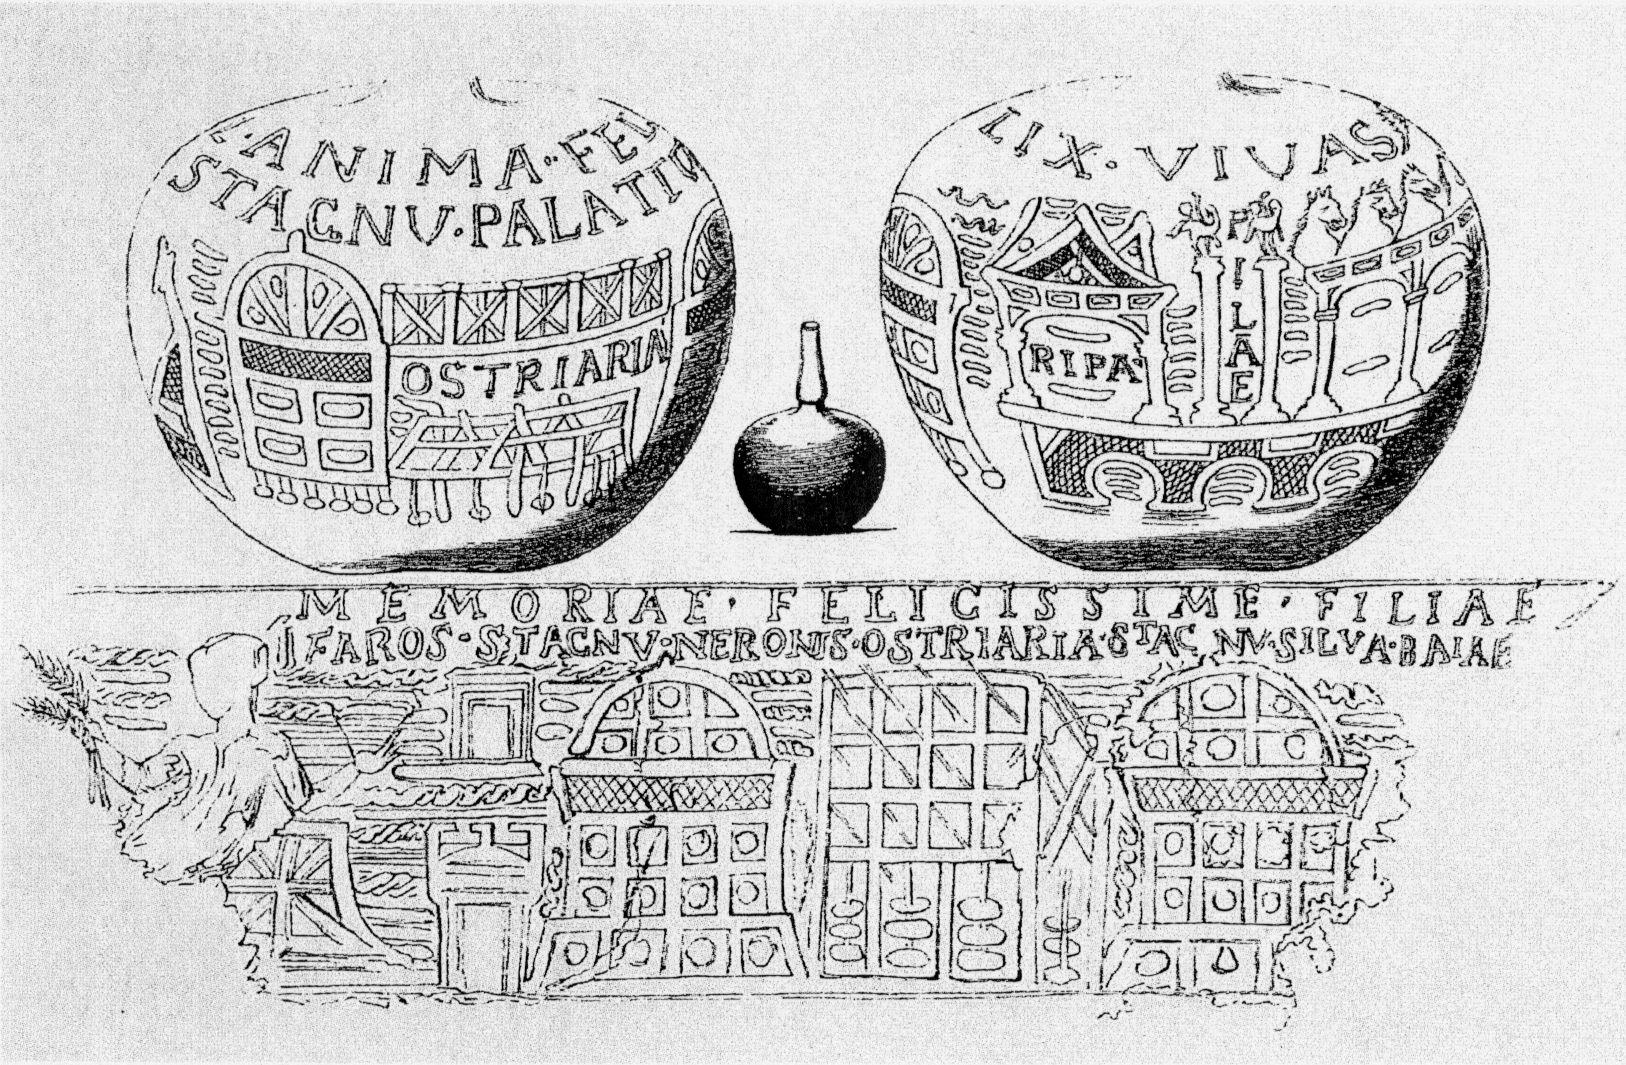 ANIMA·FEL
STAGNV·PALATIV
OSTRIARIA
LIX·VIVAS
RIPA
PILAE
MEMORIAE·FELICISSIME·FILIAE
FAROS·STAGNV·NERONIS·OSTRIARIA·STAG NV·SILVA·BAIAE